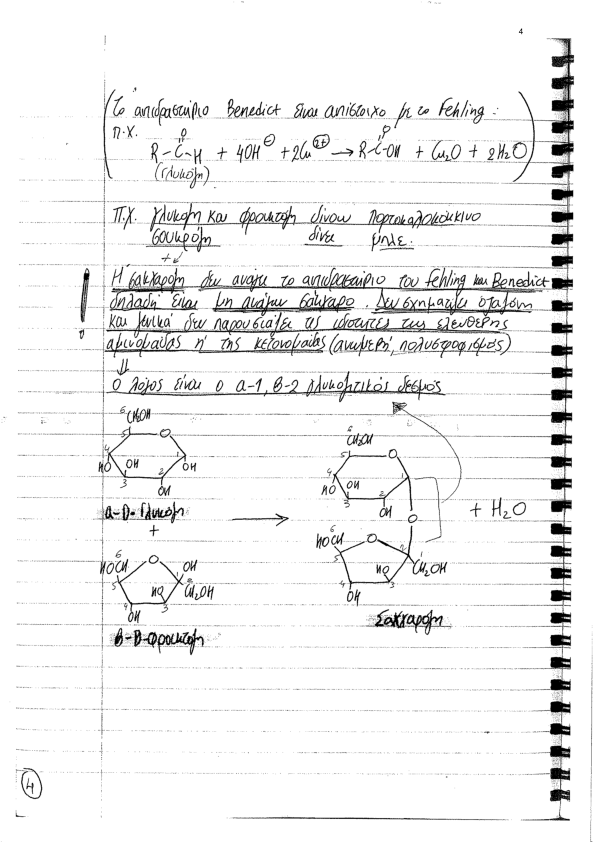 4
Το αντιδραστήριο Benedict είναι αντίστοιχο με το Fehling:
π.χ.
O O
R-C-H + 4OH⊖ + 2Cu2+ → R-C-OH + Cu2O + 2H2O
(γλυκόζη)
Π.χ. γλυκόζη και φρουκτόζη δίνουν πορτοκαλοκόκκινο
σουκρόζη δίνει μπλε.
Η σακχαρόζη δεν ανάγει το αντιδραστήριο του Fehling και Benedict
δηλαδή είναι μη ανάγων σάκχαρο. Δεν σχηματίζει οζαζόνη
και γενικά δεν παρουσιάζει τις ιδιότητες της ελεύθερης
ή της κετονομάδας (ανωμερή, πολυστροφισμός)
⇓
Ο λόγος είναι ο α-1, β-2 γλυκοζιτικός δεσμός
6 CH2OH 5 O 4 1 HO OH 3 2 OH OH
α-D-Γλυκόζη
+
6 HOCH 5 O OH 1 2 CH2OH HO 4 3 OH
β-D-Φρουκτόζη
→
6 CH2OH 5 O 4 1 HO OH 3 2 OH
O
+ H2O
6 HOCH O 2 1 5 HO CH2OH 4 3 OH
Σακχαρόζη
4